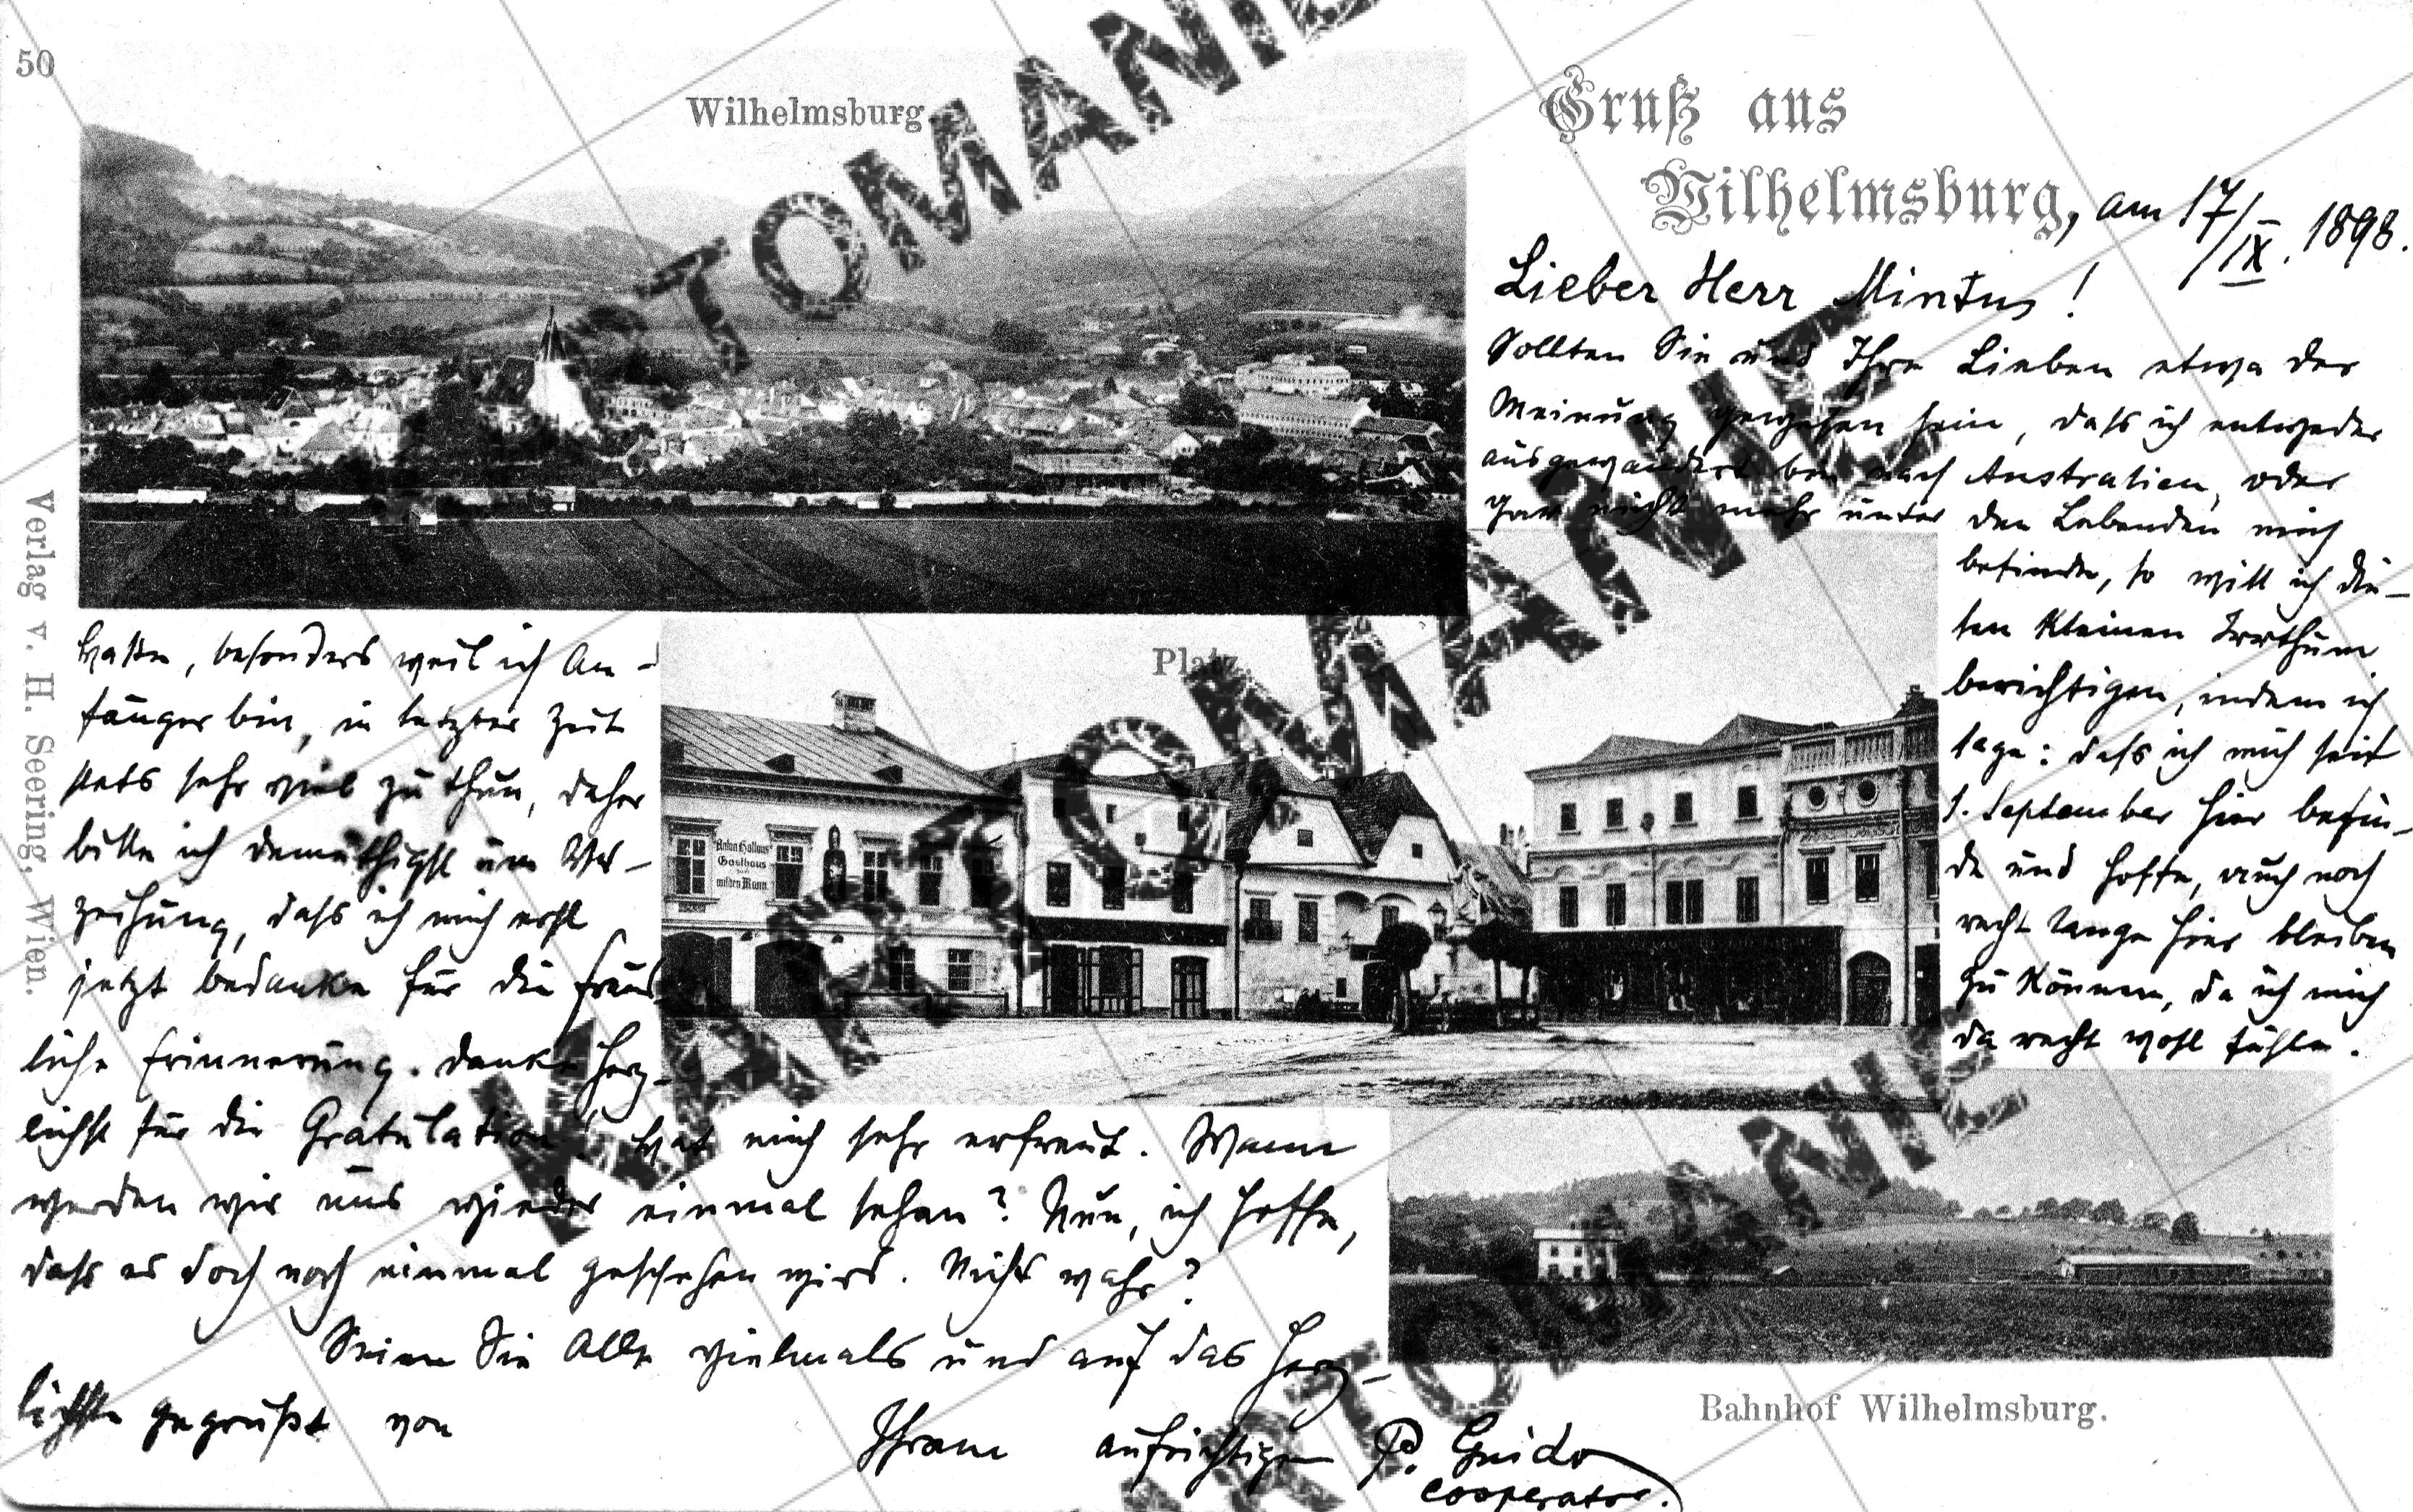 50
Wilhelmsburg.
Gruß aus
Wilhelmsburg, am 17/IX. 1898.
Lieber Herr Mintus!
Sollten Sie und Ihre Lieben etwa der
Meinung gewesen sein, daß ich entweder
ausgewandert bin nach Australien, oder
gar nicht mehr unter den Lebenden mich
befinde, so will ich die-
sen kleinen Irrthum
berichtigen, indem ich
sage: daß ich mich seit
1. September hier befin-
de und hoffe, auch noch
recht lange hier bleiben
zu können, da ich mich
da recht wohl fühle.
Hatte, besonders weil ich An-
fänger bin, in letzter Zeit
stets sehr viel zu thun, daher
bitte ich demüthigst um Ver-
zeihung, daß ich mich erst
jetzt bedanke für die freund-
liche Erinnerung. Danke herz-
lichst für die Gratulation! Hat mich sehr erfreut. Wann
werden wir uns wieder einmal sehen? Nun, ich hoffe,
daß es doch noch einmal geschehen wird. Nicht wahr?
Seien Sie Alle vielmals und auf das herz-
lichste gegrüßt von
Ihrem aufrichtigen P. Guido
Cooperator.
Platz.
Gasthaus
zum
wilden Mann.
Bahnhof Wilhelmsburg.
Verlag v. H. Seering, Wien.
KARTOMANIE
KARTOMANIE
KARTOMANIE